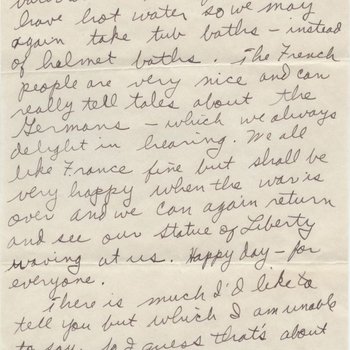 have hot water so we may
again take tub baths - instead
of helmet baths. The French
people are very nice and can
really tell tales about the
Germans - which we always
delight in hearing. We all
like France fine but shall be
very happy when the war is
over and we can again return
and see our Statue of Liberty
waving at us. Happy day - for
everyone.
There is much I'd like to
tell you but which I am unable
to say, so I guess that's about